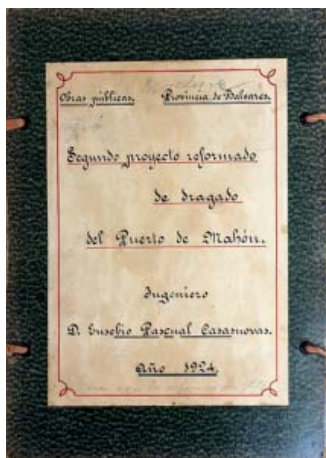 Obras públicas. Provincia de Baleares.
Segundo proyecto reformado
de dragado
del Puerto de Mahón.
Ingeniero
D. Eusebio Pascual Casasnovas.
Año 1924.